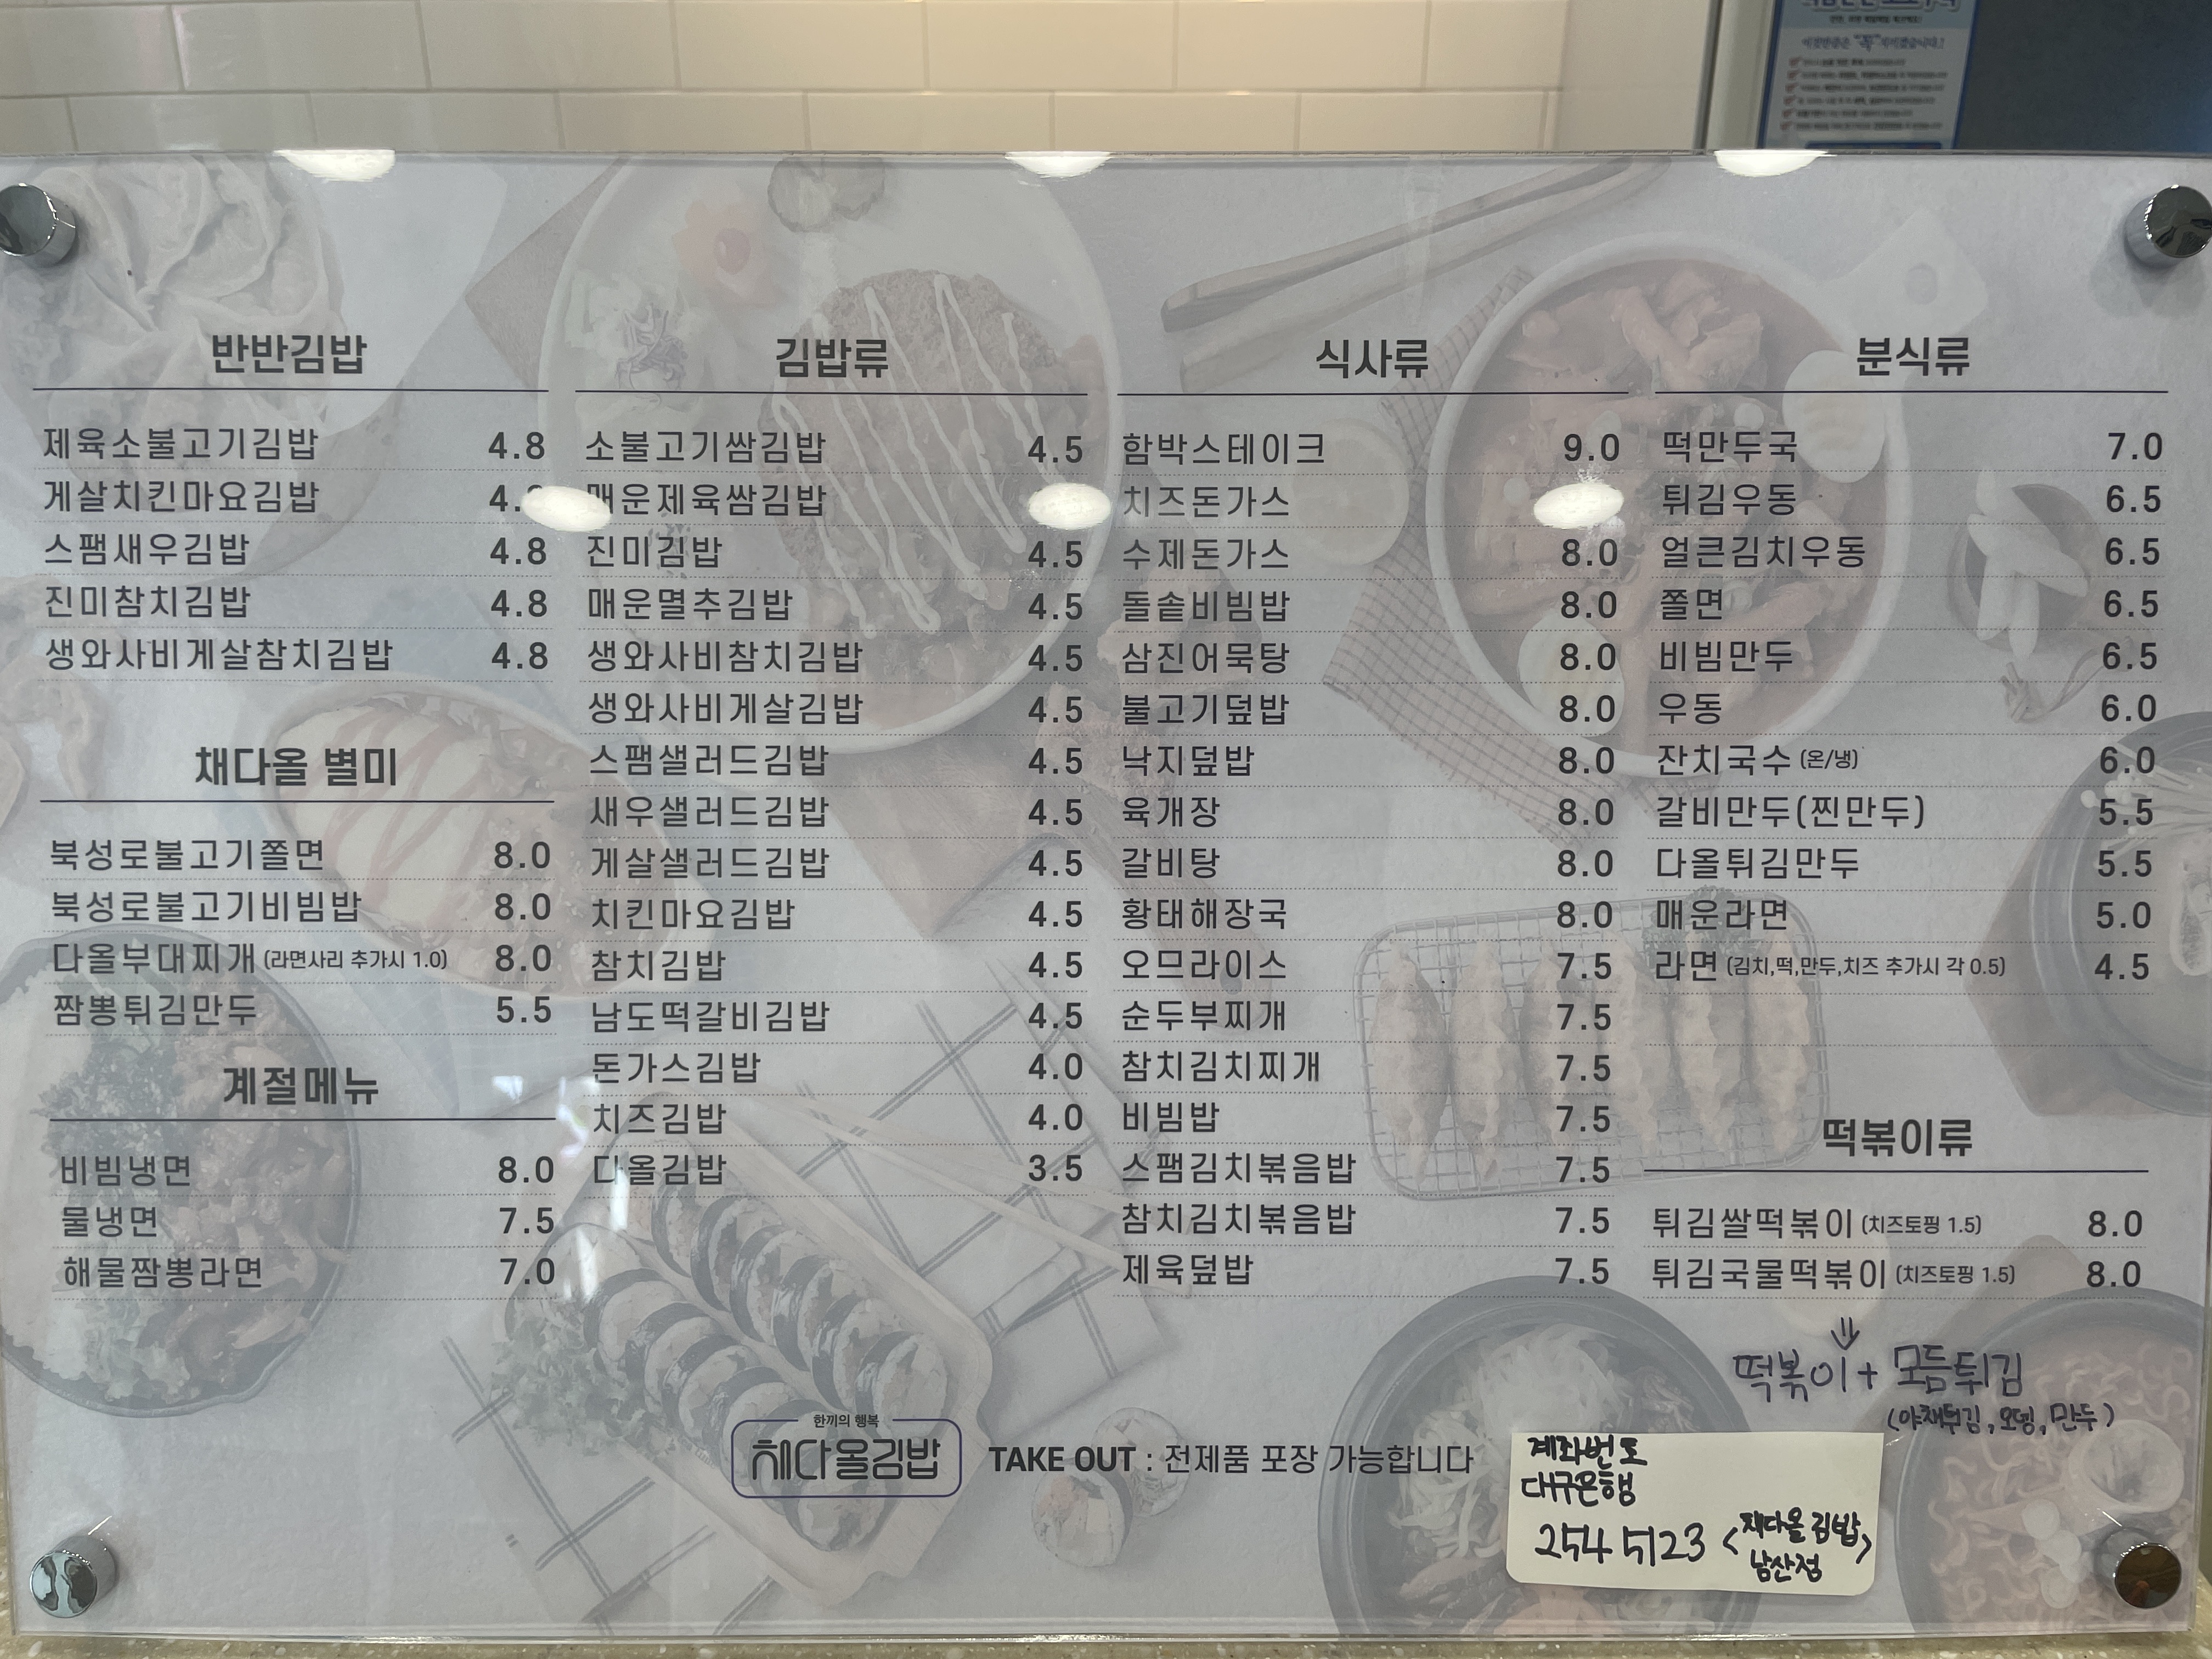 반반김밥
제육소불고기김밥 4.8
게살치킨마요김밥 4.
스팸새우김밥 4.8
진미참치김밥 4.8
생와사비게살참치김밥 4.8
채다올 별미
북성로불고기쫄면 8.0
북성로불고기비빔밥 8.0
다올부대찌개 (라면사리 추가시 1.0) 8.0
짬뽕튀김만두 5.5
계절메뉴
비빔냉면 8.0
물냉면 7.5
해물짬뽕라면 7.0
김밥류
소불고기쌈김밥 4.5
매운제육쌈김밥
진미김밥 4.5
매운멸추김밥 4.5
생와사비참치김밥 4.5
생와사비게살김밥 4.5
스팸샐러드김밥 4.5
새우샐러드김밥 4.5
게살샐러드김밥 4.5
치킨마요김밥 4.5
참치김밥 4.5
남도떡갈비김밥 4.5
돈가스김밥 4.0
치즈김밥 4.0
다올김밥 3.5
식사류
함박스테이크 9.0
치즈돈가스
수제돈가스 8.0
돌솥비빔밥 8.0
삼진어묵탕 8.0
불고기덮밥 8.0
낙지덮밥 8.0
육개장 8.0
갈비탕 8.0
황태해장국 8.0
오므라이스 7.5
순두부찌개 7.5
참치김치찌개 7.5
비빔밥 7.5
스팸김치볶음밥 7.5
참치김치볶음밥 7.5
제육덮밥 7.5
분식류
떡만두국 7.0
튀김우동 6.5
얼큰김치우동 6.5
쫄면 6.5
비빔만두 6.5
우동 6.0
잔치국수 (온/냉) 6.0
갈비만두(찐만두) 5.5
다올튀김만두 5.5
매운라면 5.0
라면 (김치,떡,만두,치즈 추가시 각 0.5) 4.5
떡볶이류
튀김쌀떡볶이 (치즈토핑 1.5) 8.0
튀김국물떡볶이 (치즈토핑 1.5) 8.0
⇓
떡볶이 + 모듬튀김
(야채튀김, 오뎅, 만두)
한끼의 행복
채다올김밥
TAKE OUT : 전제품 포장 가능합니다
계좌번호
대구은행
254 5123 <채다올 김밥
남산점>